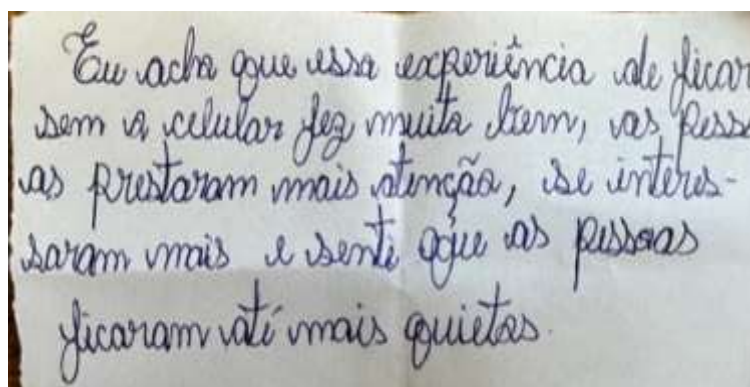 Eu acho que essa experiência de ficar
sem o celular fez muito bem, as pesso
as prestaram mais atenção, se interes-
saram mais e senti que as pessoas
ficaram até mais quietas.